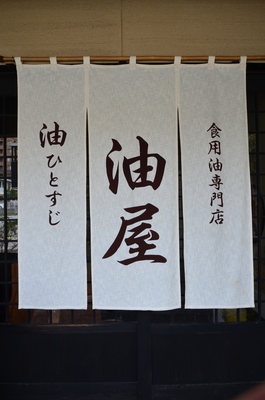 食用油専門店
油屋
油ひとすじ